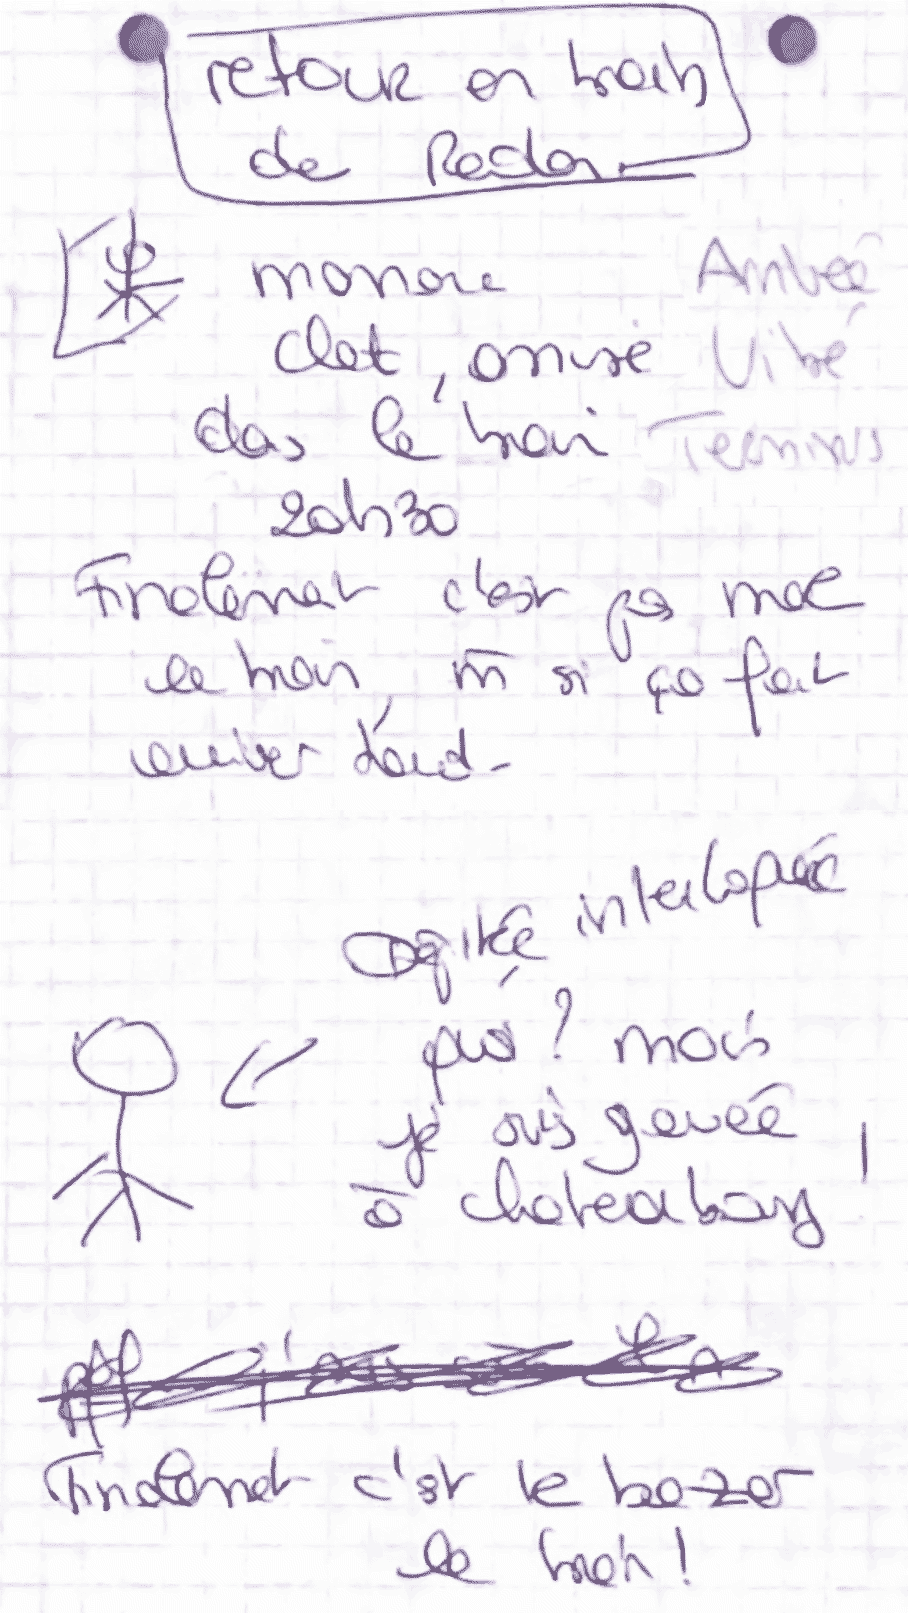 retour en train
de Redon
monore
clet, omise
dans le train
20h30
Arrivée
Vitré
Terminus
Finalement c'est pas mal
le train, m̄ si ça fait
arriver tard.
Agitée interloquée
quoi ? mais
je suis garée
à chateaubourg !
Finalement c'est le bazar
le train !